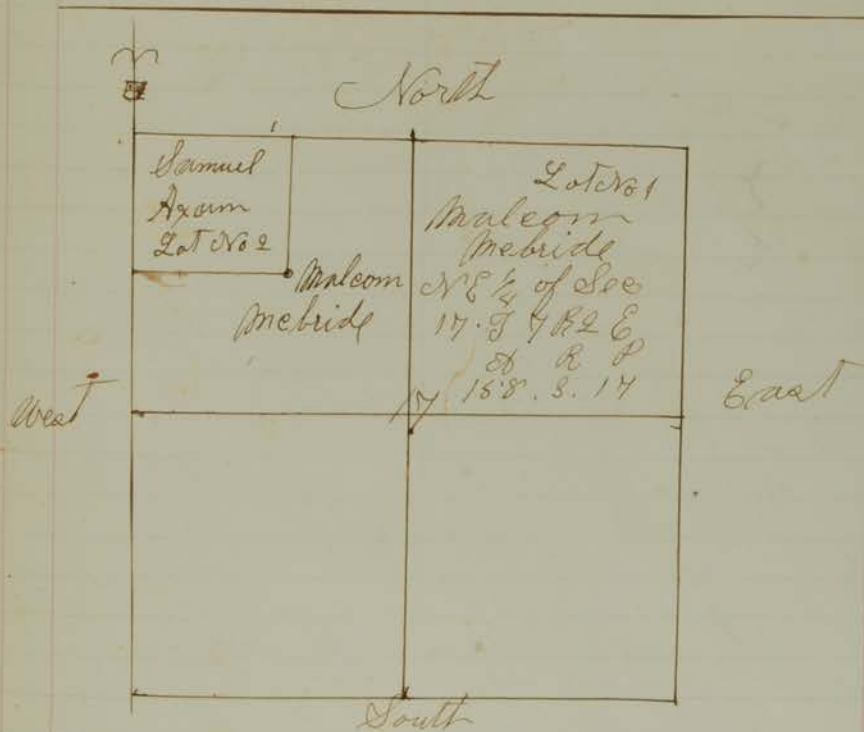 North
Samuel
Axom
Lot No 2
Malcom
Mcbride
Lot No 1
Malcom
Mcbride
N E ¼ of Sec
17. T 7 R 2 E
A R P
158. 3. 17
West
17
East
South